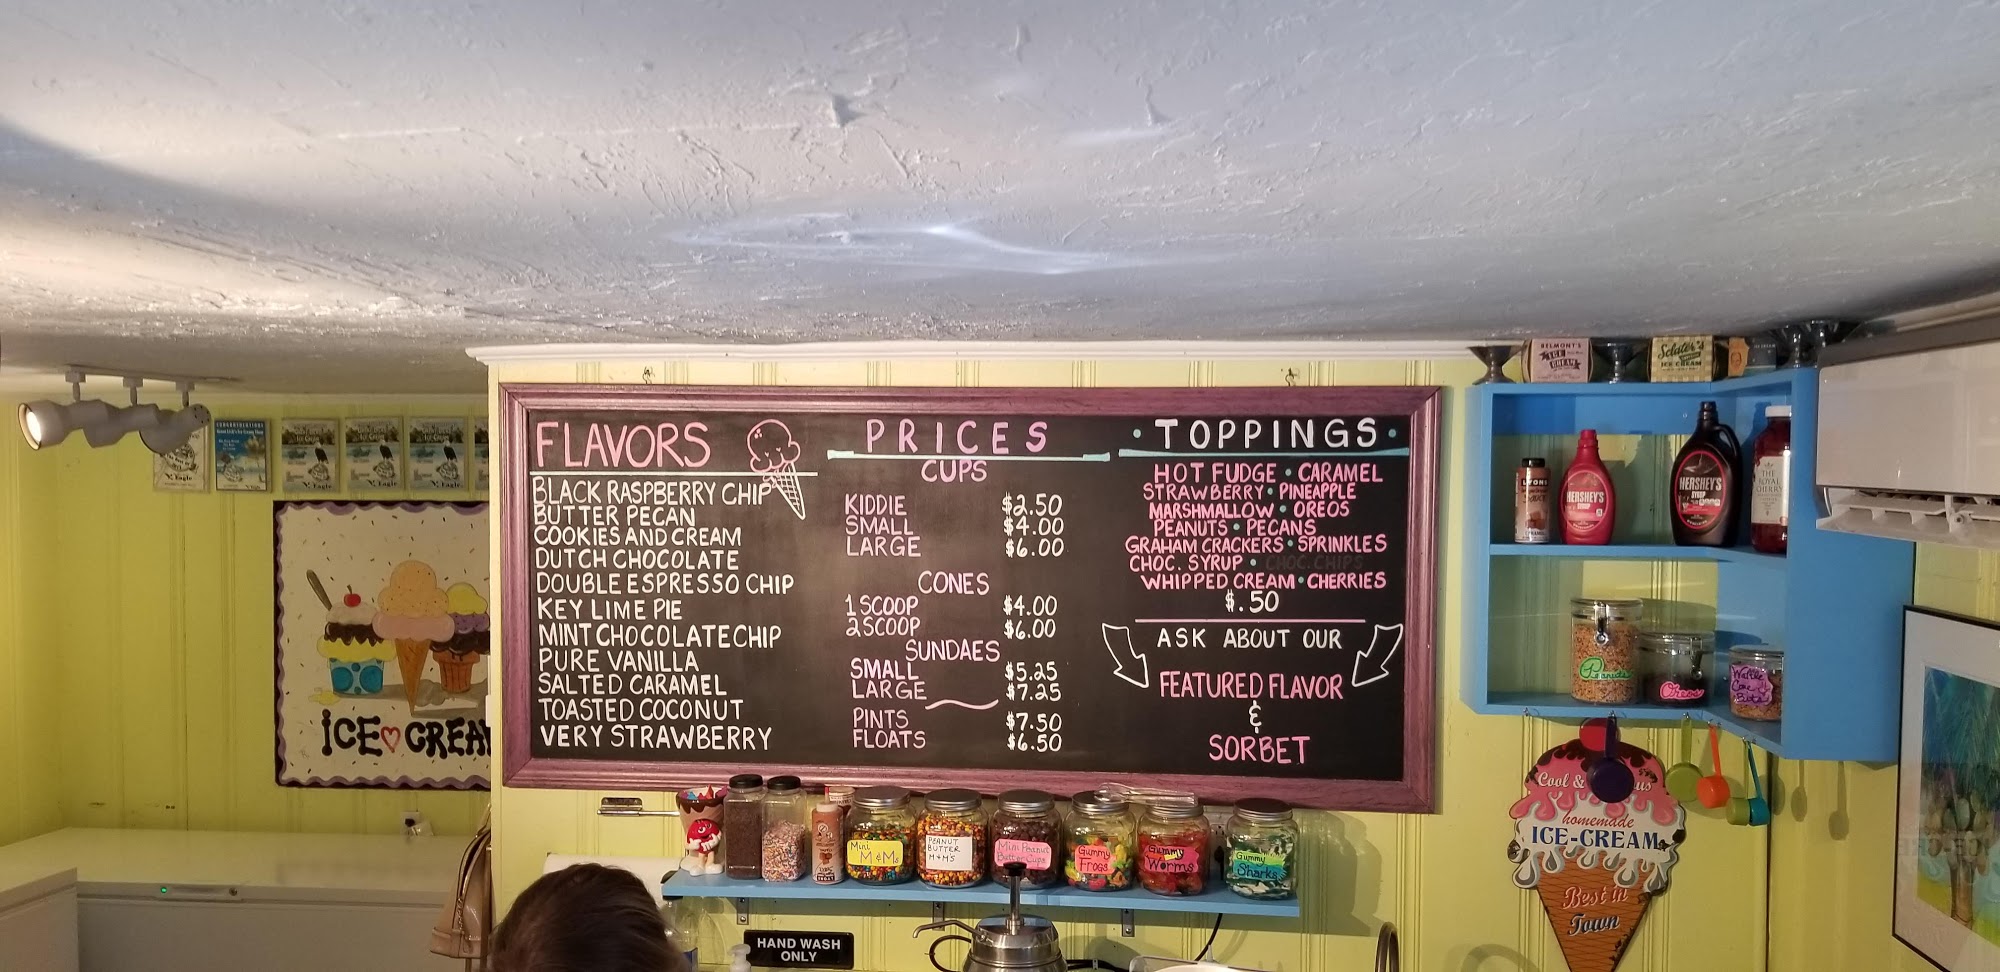 FLAVORS
BLACK RASPBERRY CHIP
BUTTER PECAN
COOKIES AND CREAM
DUTCH CHOCOLATE
DOUBLE ESPRESSO CHIP
KEY LIME PIE
MINT CHOCOLATE CHIP
PURE VANILLA
SALTED CARAMEL
TOASTED COCONUT
VERY STRAWBERRY
PRICES
CUPS
KIDDIE $2.50
SMALL $4.00
LARGE $6.00
CONES
1 SCOOP $4.00
2 SCOOP $6.00
SUNDAES
SMALL $5.25
LARGE $7.25
PINTS $7.50
FLOATS $6.50
• TOPPINGS •
HOT FUDGE • CARAMEL
STRAWBERRY • PINEAPPLE
MARSHMALLOW • OREOS
PEANUTS • PECANS
GRAHAM CRACKERS • SPRINKLES
CHOC. SYRUP • CHOC. CHIPS
WHIPPED CREAM • CHERRIES
$.50
ASK ABOUT OUR
FEATURED FLAVOR
&
SORBET
ICE CREAM
Eagle
Eagle
Eagle
BELMONT'S
ICE
CREAM
Sclater's
ICE CREAM
LYONS
HERSHEY'S
SYRUP
HERSHEY'S
SYRUP
THE
ROYAL
CHERRY
Peanuts
Oreos
Waffle
Cone
Bits
Mini
M&Ms
PEANUT
BUTTER
M+M'S
Mini Peanut
Butter Cups
Gummy
Frogs
Gummy
Worms
Gummy
Sharks
HAND WASH
ONLY
Cool &
homemade
ICE-CREAM
Best in
Town